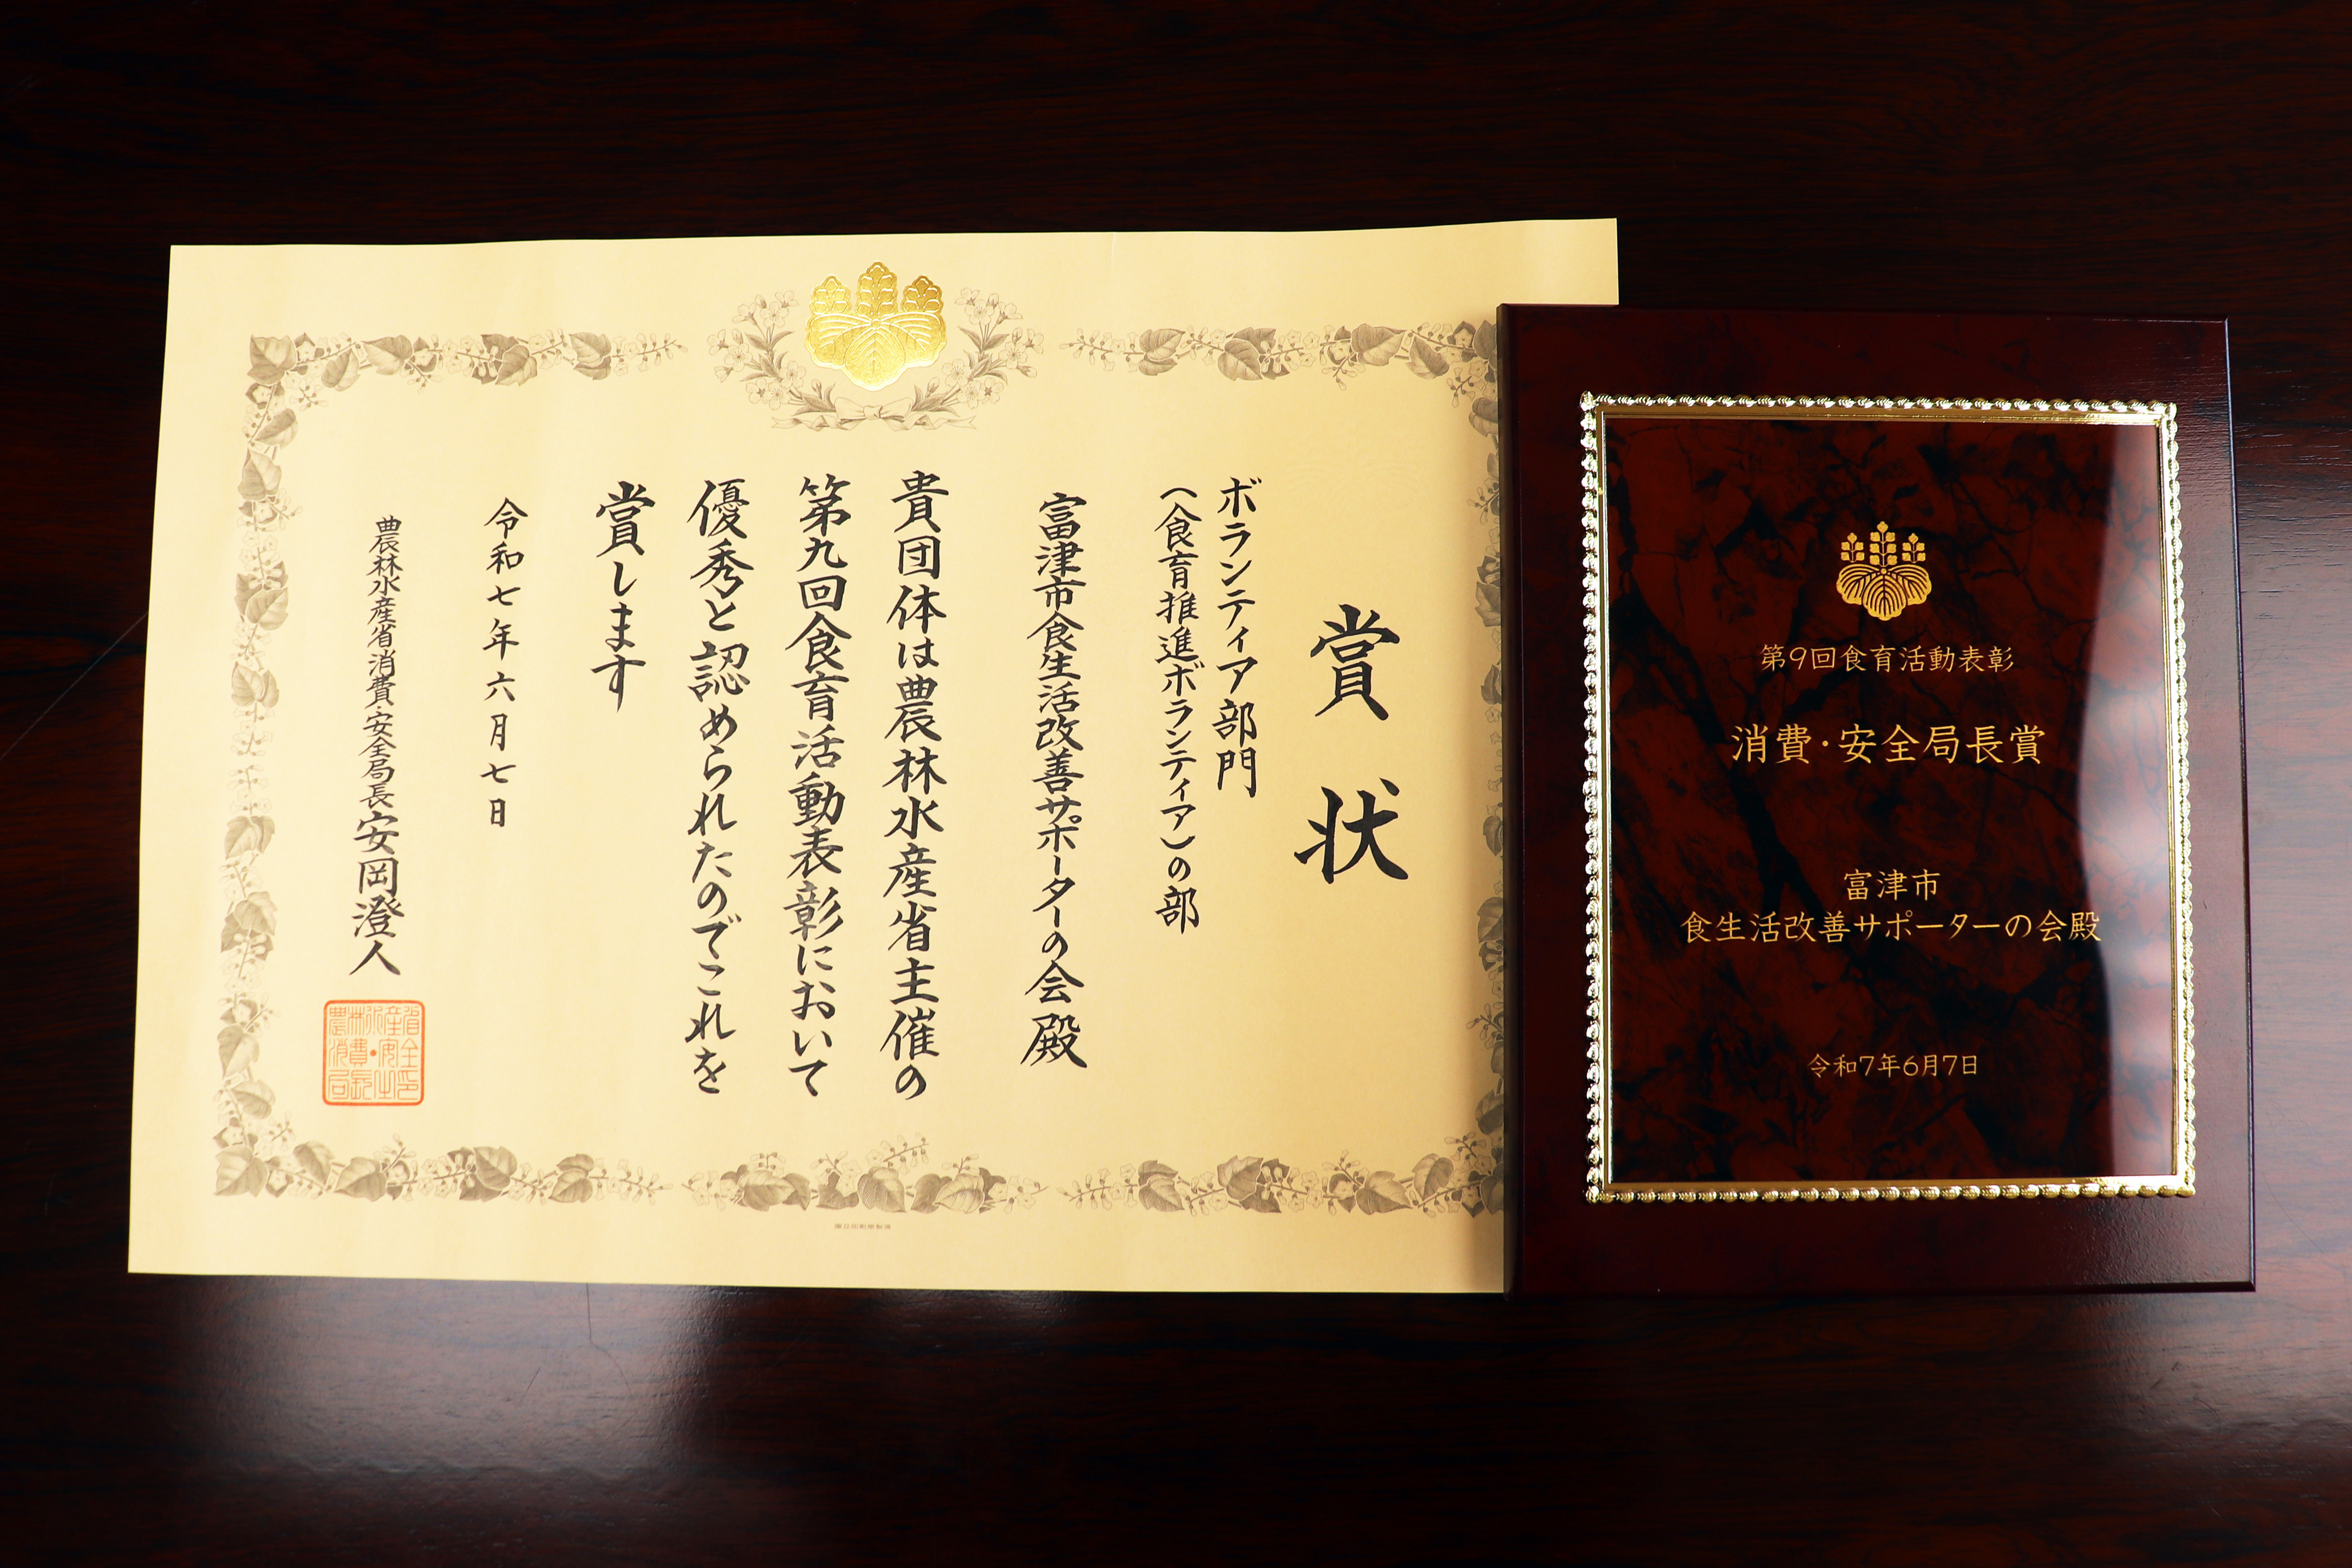 賞状
ボランティア部門
（食育推進ボランティア）の部
富津市食生活改善サポーターの会殿
貴団体は農林水産省主催の
第九回食育活動表彰において
優秀と認められたのでこれを
賞します
令和七年六月七日
農林水産省消費・安全局長安岡澄人
第9回食育活動表彰
消費・安全局長賞
富津市
食生活改善サポーターの会殿
令和7年6月7日